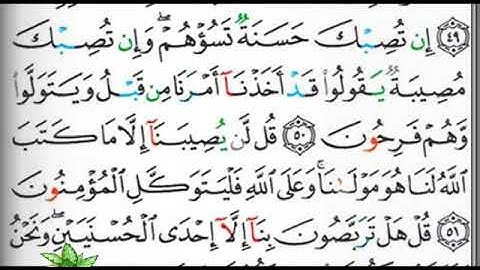 ٤٩ إِن تُصِبْكَ حَسَنَةٌ تَسُؤْهُمْ ۖ وَإِن تُصِبْكَ
مُصِيبَةٌ يَقُولُوا۟ قَدْ أَخَذْنَآ أَمْرَنَا مِن قَبْلُ وَيَتَوَلَّوا۟
وَّهُمْ فَرِحُونَ ٥٠ قُل لَّن يُصِيبَنَآ إِلَّا مَا كَتَبَ
اللَّهُ لَنَا هُوَ مَوْلَىٰنَا ۚ وَعَلَى اللَّهِ فَلْيَتَوَكَّلِ الْمُؤْمِنُونَ
٥١ قُلْ هَلْ تَرَبَّصُونَ بِنَآ إِلَّآ إِحْدَى الْحُسْنَيَيْنِ ۖ وَنَحْنُ